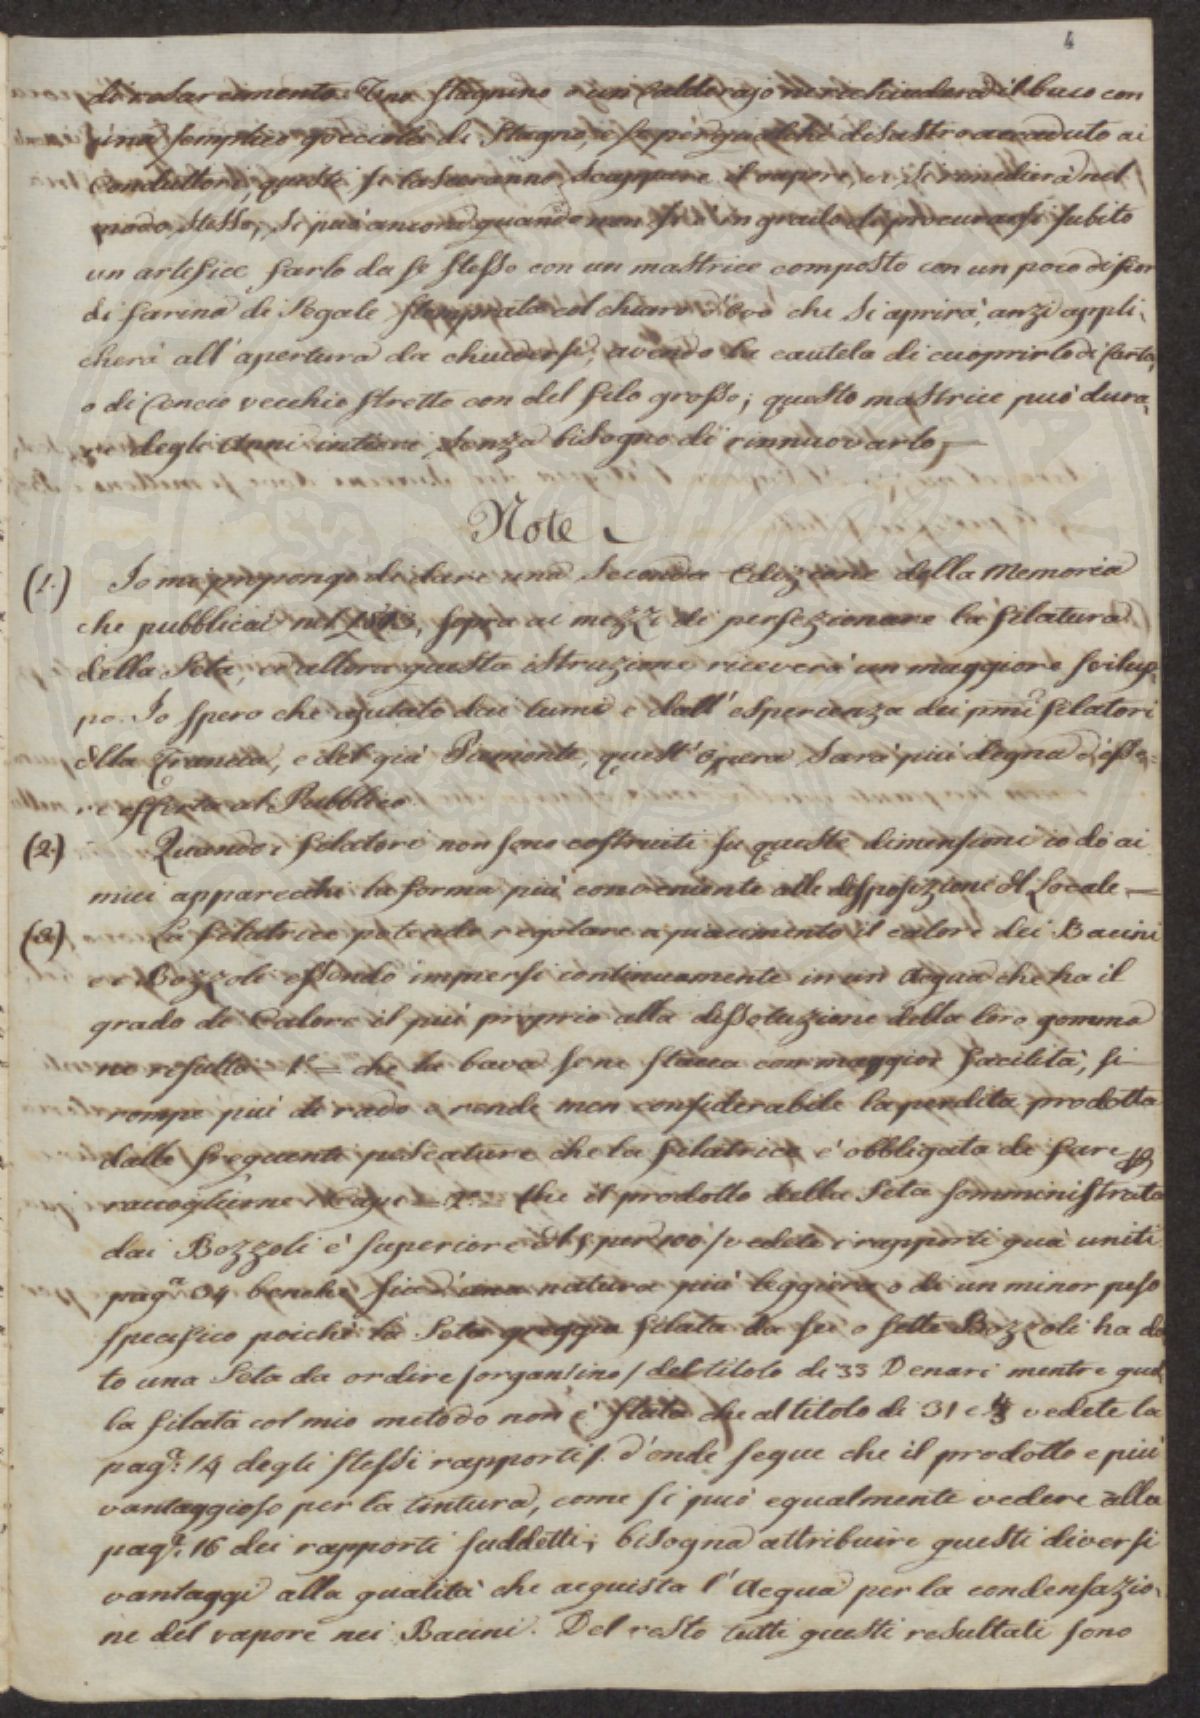 4
di resarcimento. Uno Stagnino o un Calderajo ne richiuderà il buco con
una semplice gocciola di Stagno, e se per qualche disastro accaduto ai
Conduttori, questi si lasceranno scappare il vapore, vi si rimedierà nel
modo stesso, si può ancora quando non si è in grado di procurarsi subito
un artefice, farlo da se stesso con un mastrice composto con un poco di fior
di farina di Segale stemprata col chiaro d'Ovo che si aprirà, anzi appli-
cherà all'apertura da chiudersi, avendo la cautela di cuoprirlo di Carta,
o di Cencio vecchio stretto con del filo grosso; questo mastrice può dura-
re degli Anni intieri, senza bisogno di rinnuovarlo, —
Note
(1.) Io mi propongo di dare una Seconda Edizione della Memoria
che pubblicai nel, sopra ai mezzi di perfezionare la filatura
della Seta, ed allora questa istruzione riceverà un maggiore svilup-
po. Io spero che ajutato dai lumi e dall'esperienza dei pmi filatori
della Francia, e del già Piemonte, quest'Opera sarà più degna d'esse-
re offerta al Pubblico
(2.) Quando i filatori non sono costruiti su queste dimensioni io dò ai
miei apparecchi la forma più conveniente alle disposizioni del Locale —
(3.) La filatrice potendo regolare a piacimento il calore dei Bacini
e i Bozzoli essendo immersi continuamente in un Acqua che ha il
grado di Calore il più proprio alla dissoluzione della loro gomma
ne resulta 1° — che la bava se ne stacca con maggior facilità, si
rompe più di rado e rende men considerabile la perdita prodotta
dalle frequenti pescature che la filatrice è obbligata di fare p
raccoglierne i Capi — 2° — Che il prodotto della Seta somministrata
dai Bozzoli è superiore del 5 per 100 / vedete i rapporti quà uniti
paga 34 benchè sia d'una natura più leggiera o di un minor peso
specifico poichè la Seta greggia filata da sei o sette Bozzoli ha da
to una Seta da ordire / organsino / del titolo di 33 Denari mentre quel
la filata col mio metodo non è stata che al titolo di 31 e vedete la
paga: 14 degli stessi rapporti /. d'onde segue che il prodotto e più
vantaggioso per la tintura, come si può egualmente vedere alla
paga: 16 dei rapporti suddetti; bisogna attribuire questi diversi
vantaggi alla qualità che acquista l'Acqua per la condensazio-
ne del vapore nei Bacini. Del resto tutti questi resultati sono